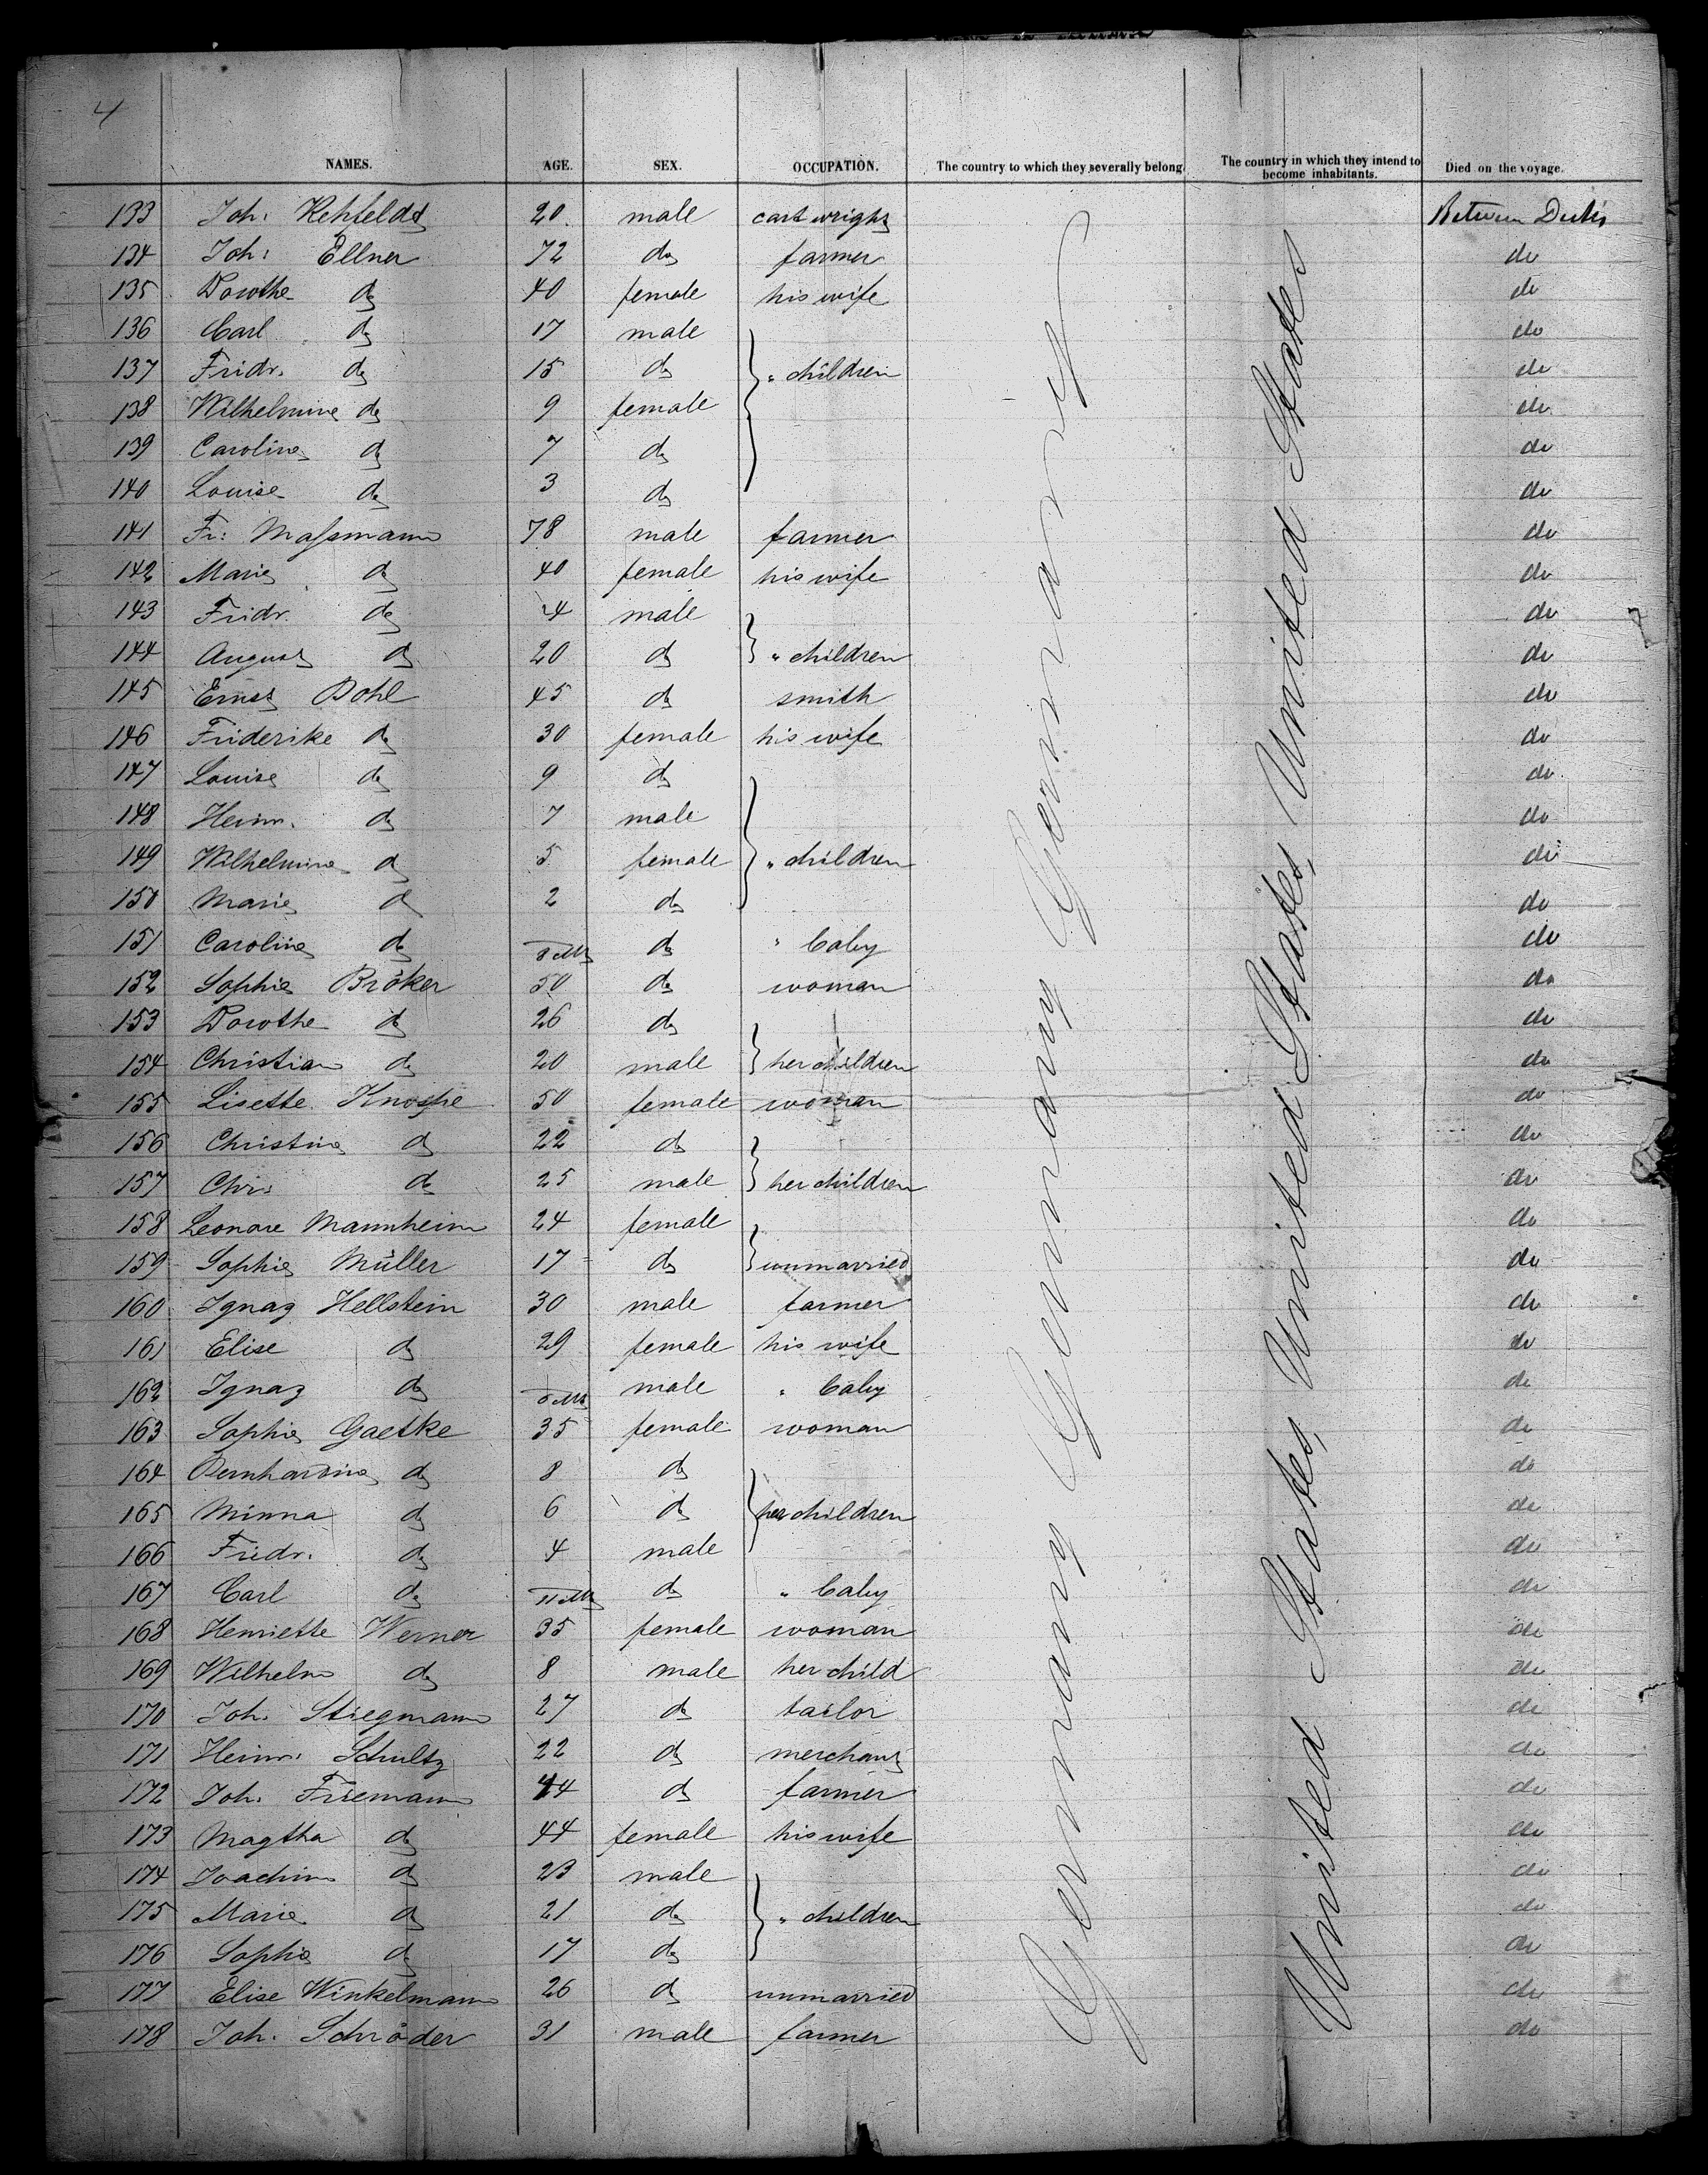 4
NAMES. AGE. SEX. OCCUPATION. The country to which they severally belong. The country in which they intend to become inhabitants. Died on the voyage.
133 Joh: Rehfeldt 20 male cartwright Between Decks
134 Joh: Ellner 72 do farmer do
135 Dorothe do 40 female his wife do
136 Carl do 17 male do
137 Fridr. do 15 do " children do
138 Wilhelmine do 9 female do
139 Caroline do 7 do do
140 Louise do 3 do do
141 Fr: Massmann 78 male farmer do
142 Marie do 40 female his wife do
143 Fridr. do 4 male do
144 August do 20 do " children do
145 Ernst Dohl 45 do smith do
146 Friderike do 30 female his wife do
147 Louise do 9 do do
148 Heinr. do 7 male do
149 Wilhelmine do 5 female " children do
150 Marie do 2 do do
151 Caroline do do " baby do
152 Sophie Bröker 50 do woman do
153 Dorothe do 26 do do
154 Christian do 20 male her children do
155 Lisette Knospe 50 female woman do
156 Christine do 22 do do
157 Chr: do 25 male her children do
158 Leonore Mannheim 24 female do
159 Sophie Müller 17 do unmarried do
160 Ignaz Hellstein 30 male farmer do
161 Elise do 29 female his wife do
162 Ignaz do male " baby do
163 Sophie Gaetke 35 female woman do
164 Bernhardine do 8 do do
165 Minna do 6 do her children do
166 Fridr. do 4 male do
167 Carl do 11 Mts do " baby do
168 Henriette Werner 35 female woman do
169 Wilhelm do 8 male her child do
170 Joh. Stiegmann 27 do tailor do
171 Heinr. Schultz 22 do merchant do
172 Joh. Friemann 44 do farmer do
173 Magtha do 44 female his wife do
174 Joachim do 23 male do
175 Marie do 21 do " children do
176 Sophie do 17 do do
177 Elise Winkelmann 26 do unmarried do
178 Joh. Schröder 31 male farmer do
Germany Germany Germany
United States United States United States